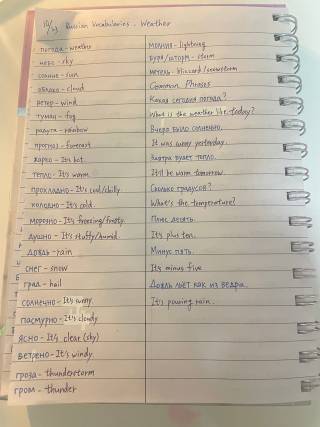 10/23 Russian Vocabularies - Weather
погода - weather
небо - sky
солнце - sun
облако - cloud
ветер - wind
туман - fog
радуга - rainbow
прогноз - forecast
жарко - It's hot.
тепло - It's warm
прохладно - It's cool/chilly
холодно - It's cold.
морозно - It's freezing/frosty.
душно - It's stuffy/humid.
дождь - rain
снег - snow
град - hail
солнечно - It's sunny.
пасмурно - It's cloudy
ясно - It's clear (sky)
ветрено - It's windy.
гроза - thunderstorm
гром - thunder
молния - lightning
буря/шторм - storm
метель - blizzard/snowstorm
Common Phrases
Какая сегодня погода?
What is the weather like today?
Вчера было солнечно.
It was sunny yesterday.
Завтра будет тепло.
It'll be warm tomorrow.
Сколько градусов?
What's the temperature?
Плюс десять.
It's plus ten.
Минус пять.
It's minus five
Дождь льёт как из ведра.
It's pouring rain.